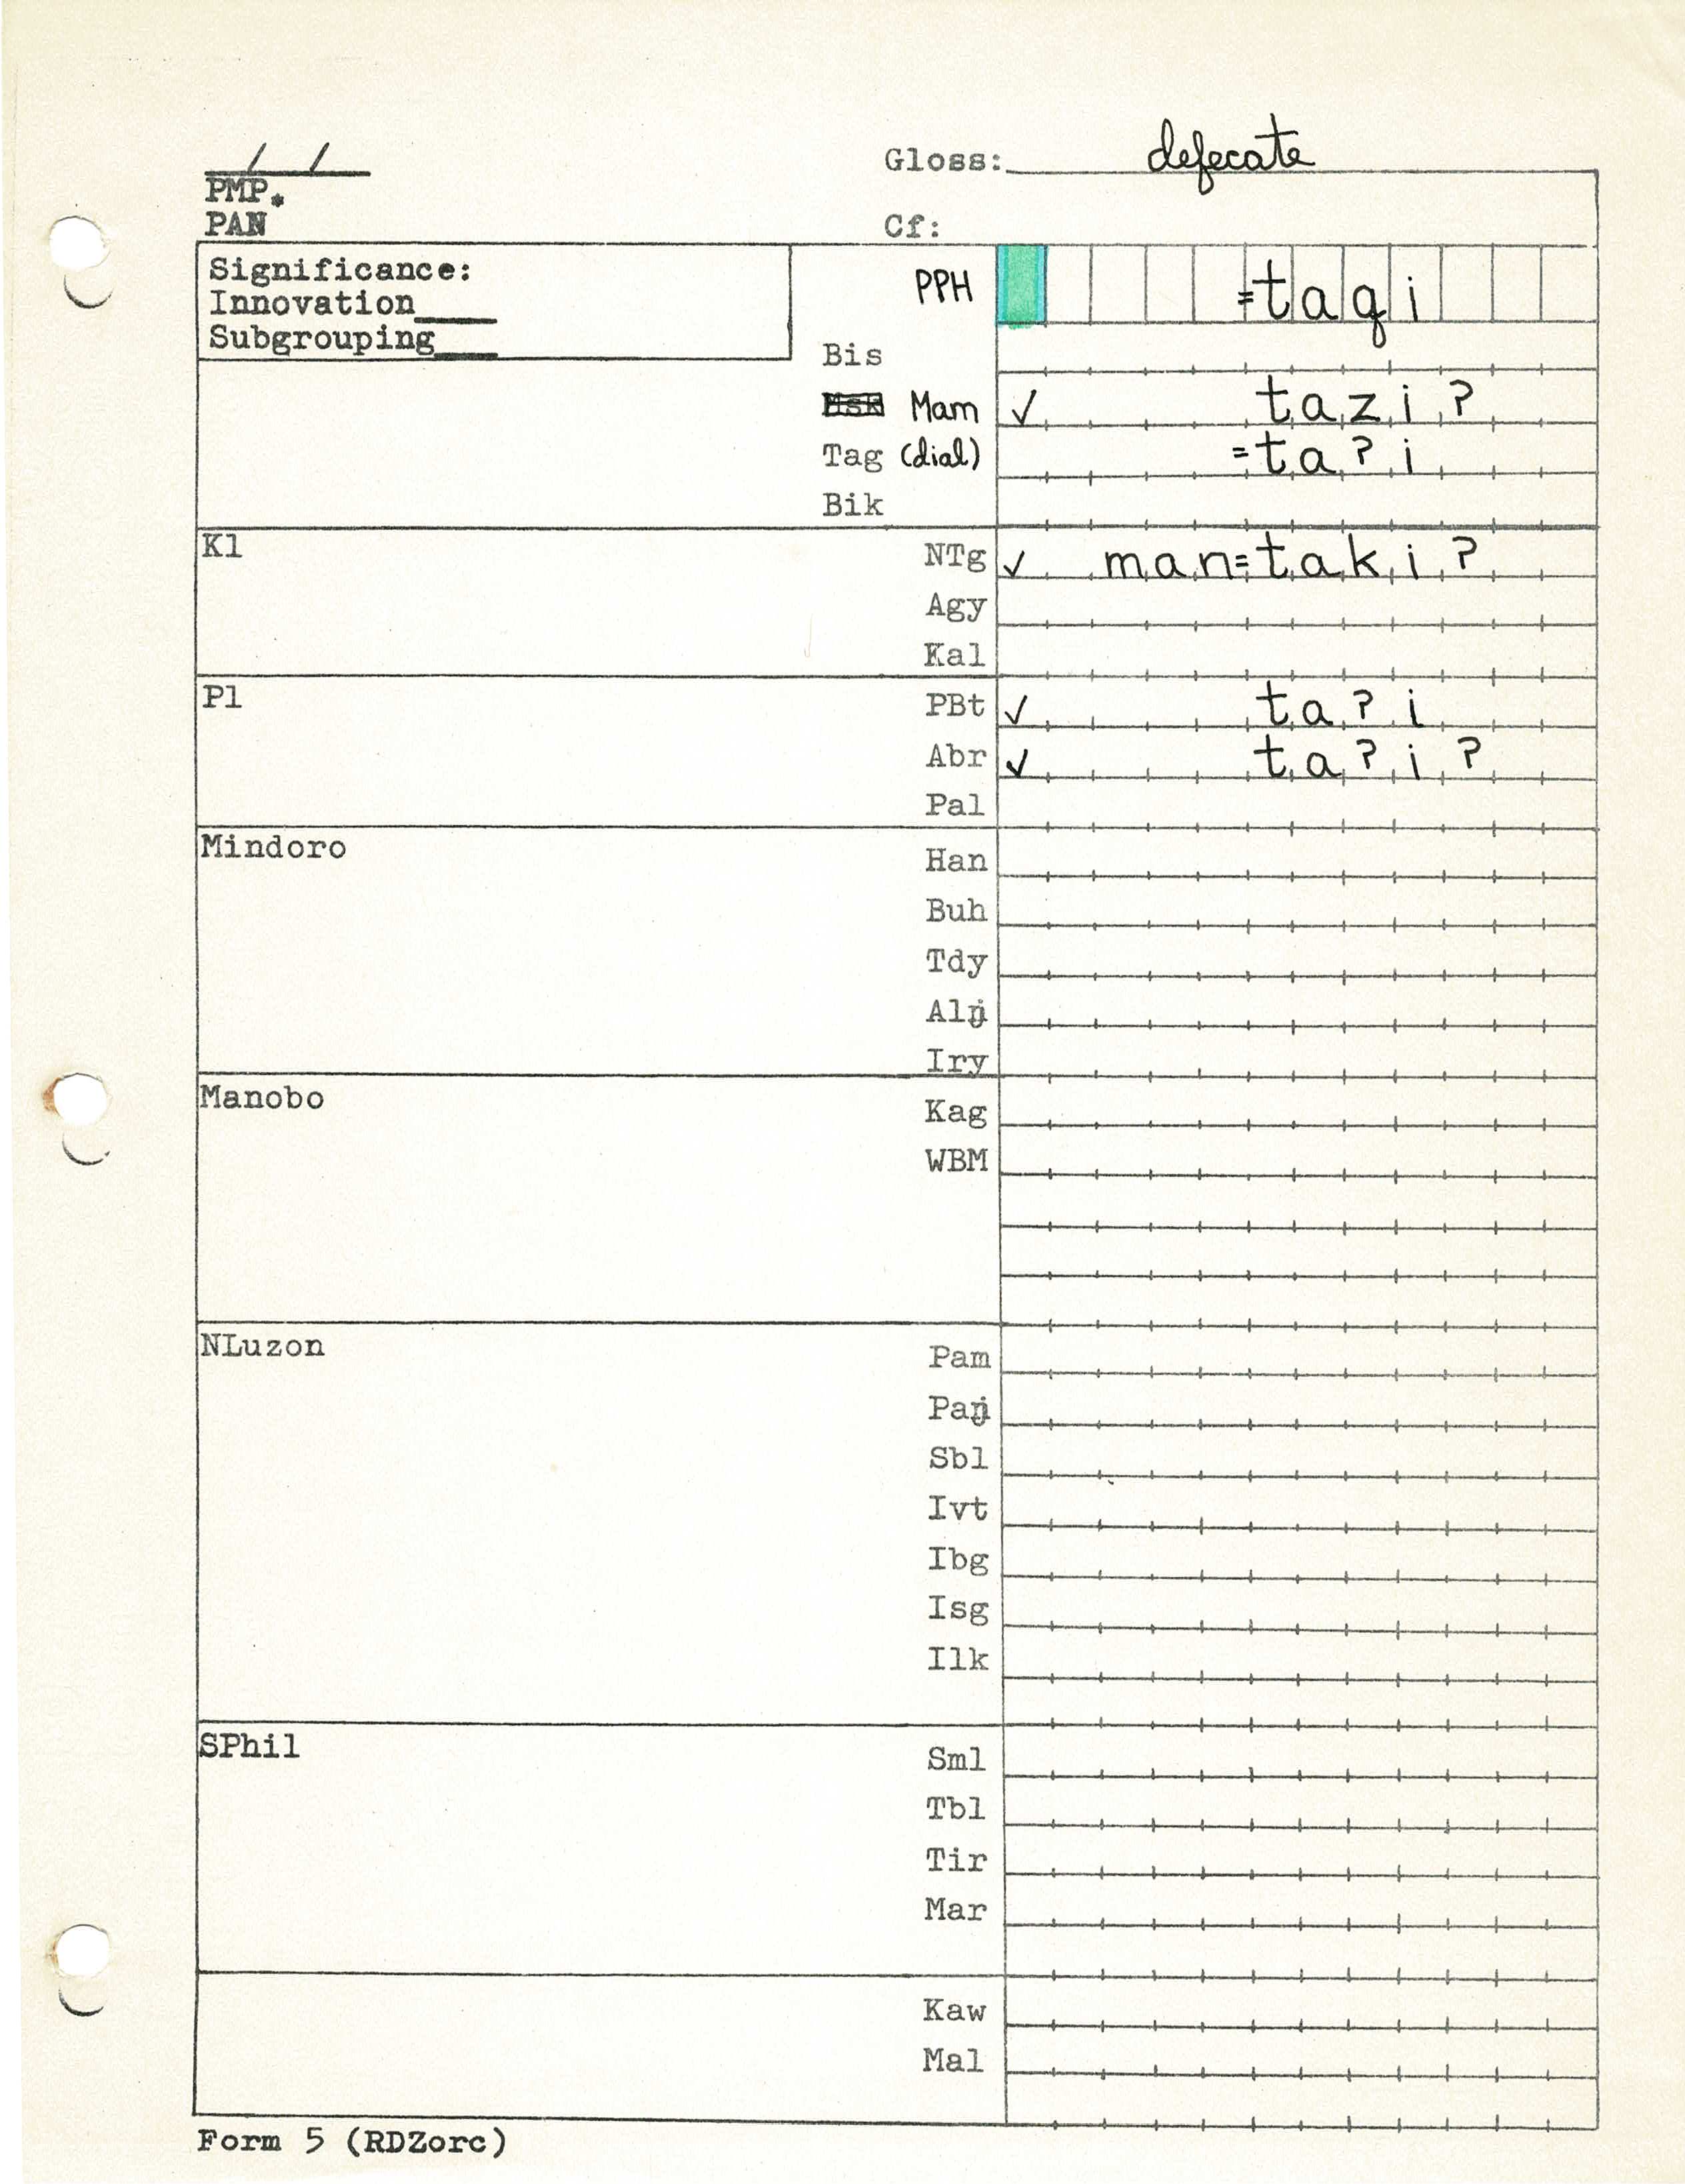 / /
Gloss: defecate
PMP*
PAN
Cf:
Significance:
Innovation____
Subgrouping____
PPH =taqi
Bis
Mam ✓ taziʔ
Tag (dial) =taʔi
Bik
Kl
NTg ✓ man=takiʔ
Agy
Kal
Pl
PBt ✓ taʔi
Abr ✓ taʔiʔ
Pal
Mindoro
Han
Buh
Tdy
Alŋ
Iry
Manobo
Kag
WBM
NLuzon
Pam
Paŋ
Sbl
Ivt
Ibg
Isg
Ilk
SPhil
Sml
Tbl
Tir
Mar
Kaw
Mal
Form 5 (RDZorc)